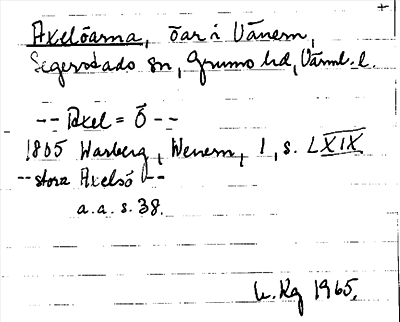 +
Axelöarna, öar i Vänern,
Segerstado sn, Grums hd, Värml. l.
-- Axel = Ö --
1805 Warberg, Wenern, 1, s. LXXIX
-- stora Axelsö --
a.a. s. 38.
Kg 1965.